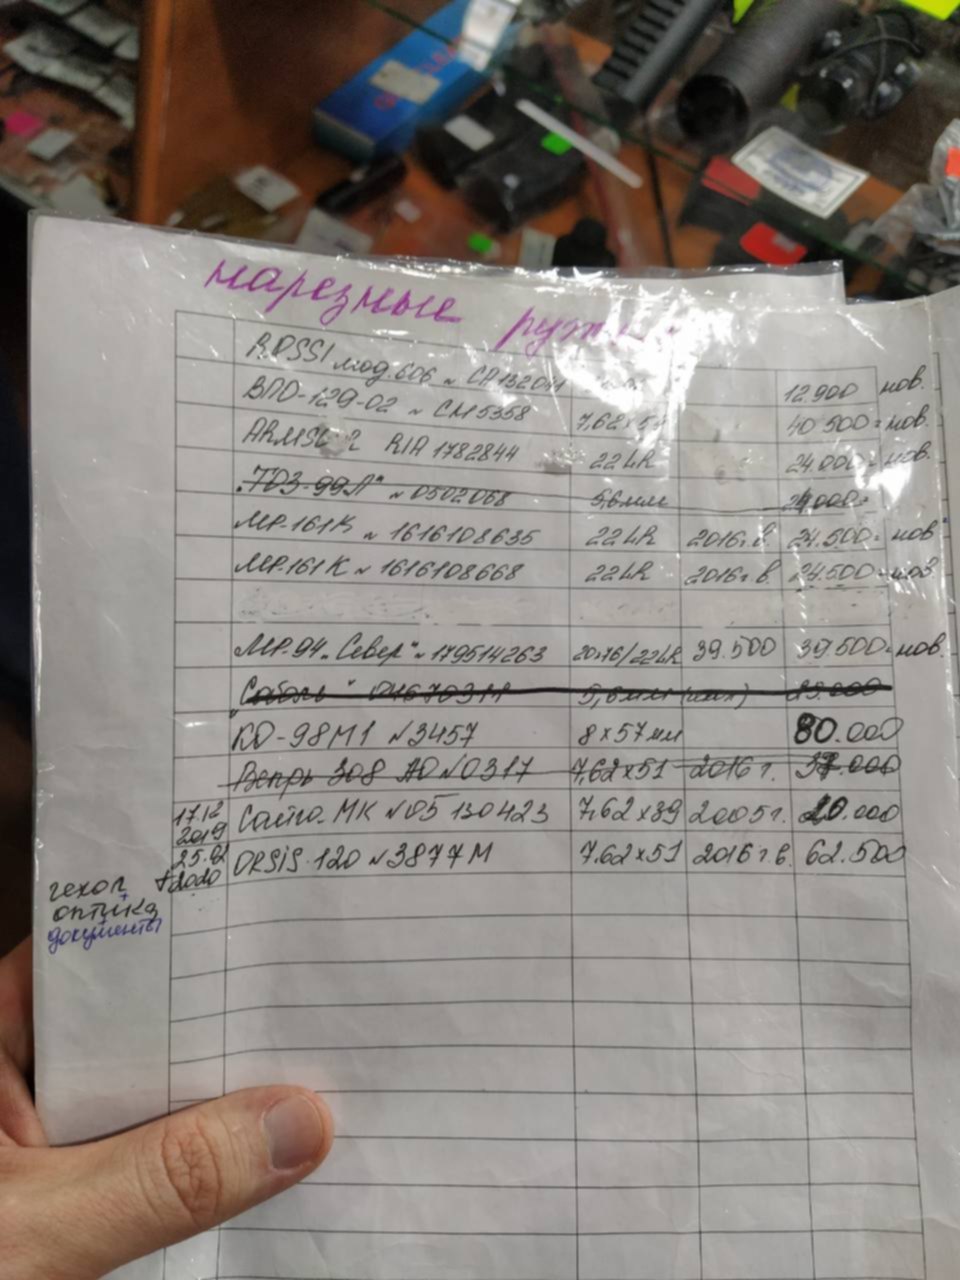 нарезные
ROSSI мод. 606 № 12.900 нов.
ВПО-129-02 № СМ5358 40 500= нов.
RIA 1782844 22LR 24.000= нов.
"ТОЗ-99Л" № 0502068 5,6мм
МР-161К № 1616108635 22LR 2016г.в. 24.500= нов
МР.161К № 1616108668 22LR 2016г.в. 24.500= нов
МР-94 "Север" № 179514263 20х76/22LR 39.500 39.500= нов.
"Соболь"
КО-98М1 №3457 8х57мм 80.000
Вепрь 308 АО №0317 7,62х51 2016г.
17.12 2019 Сайга-МК №05130423 7,62х39 2005г. 20.000
2020 ORSIS-120 №3877М 7.62х51 2016г.в. 62.500
чехол +
оптика
документы